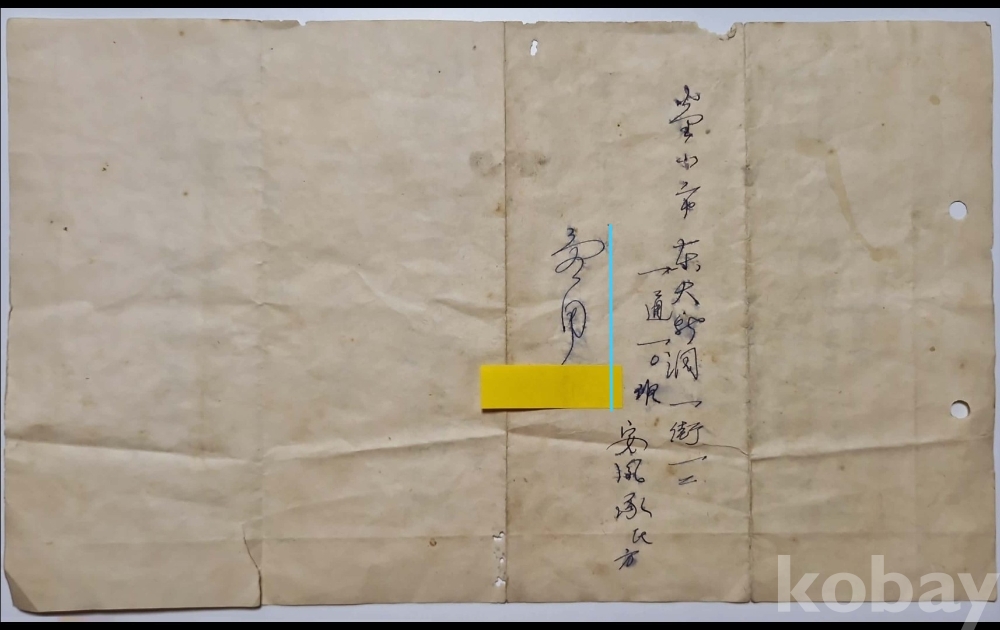 釜山市 東大新洞一街一二
一通一〇班
安鳳承氏方
kobay